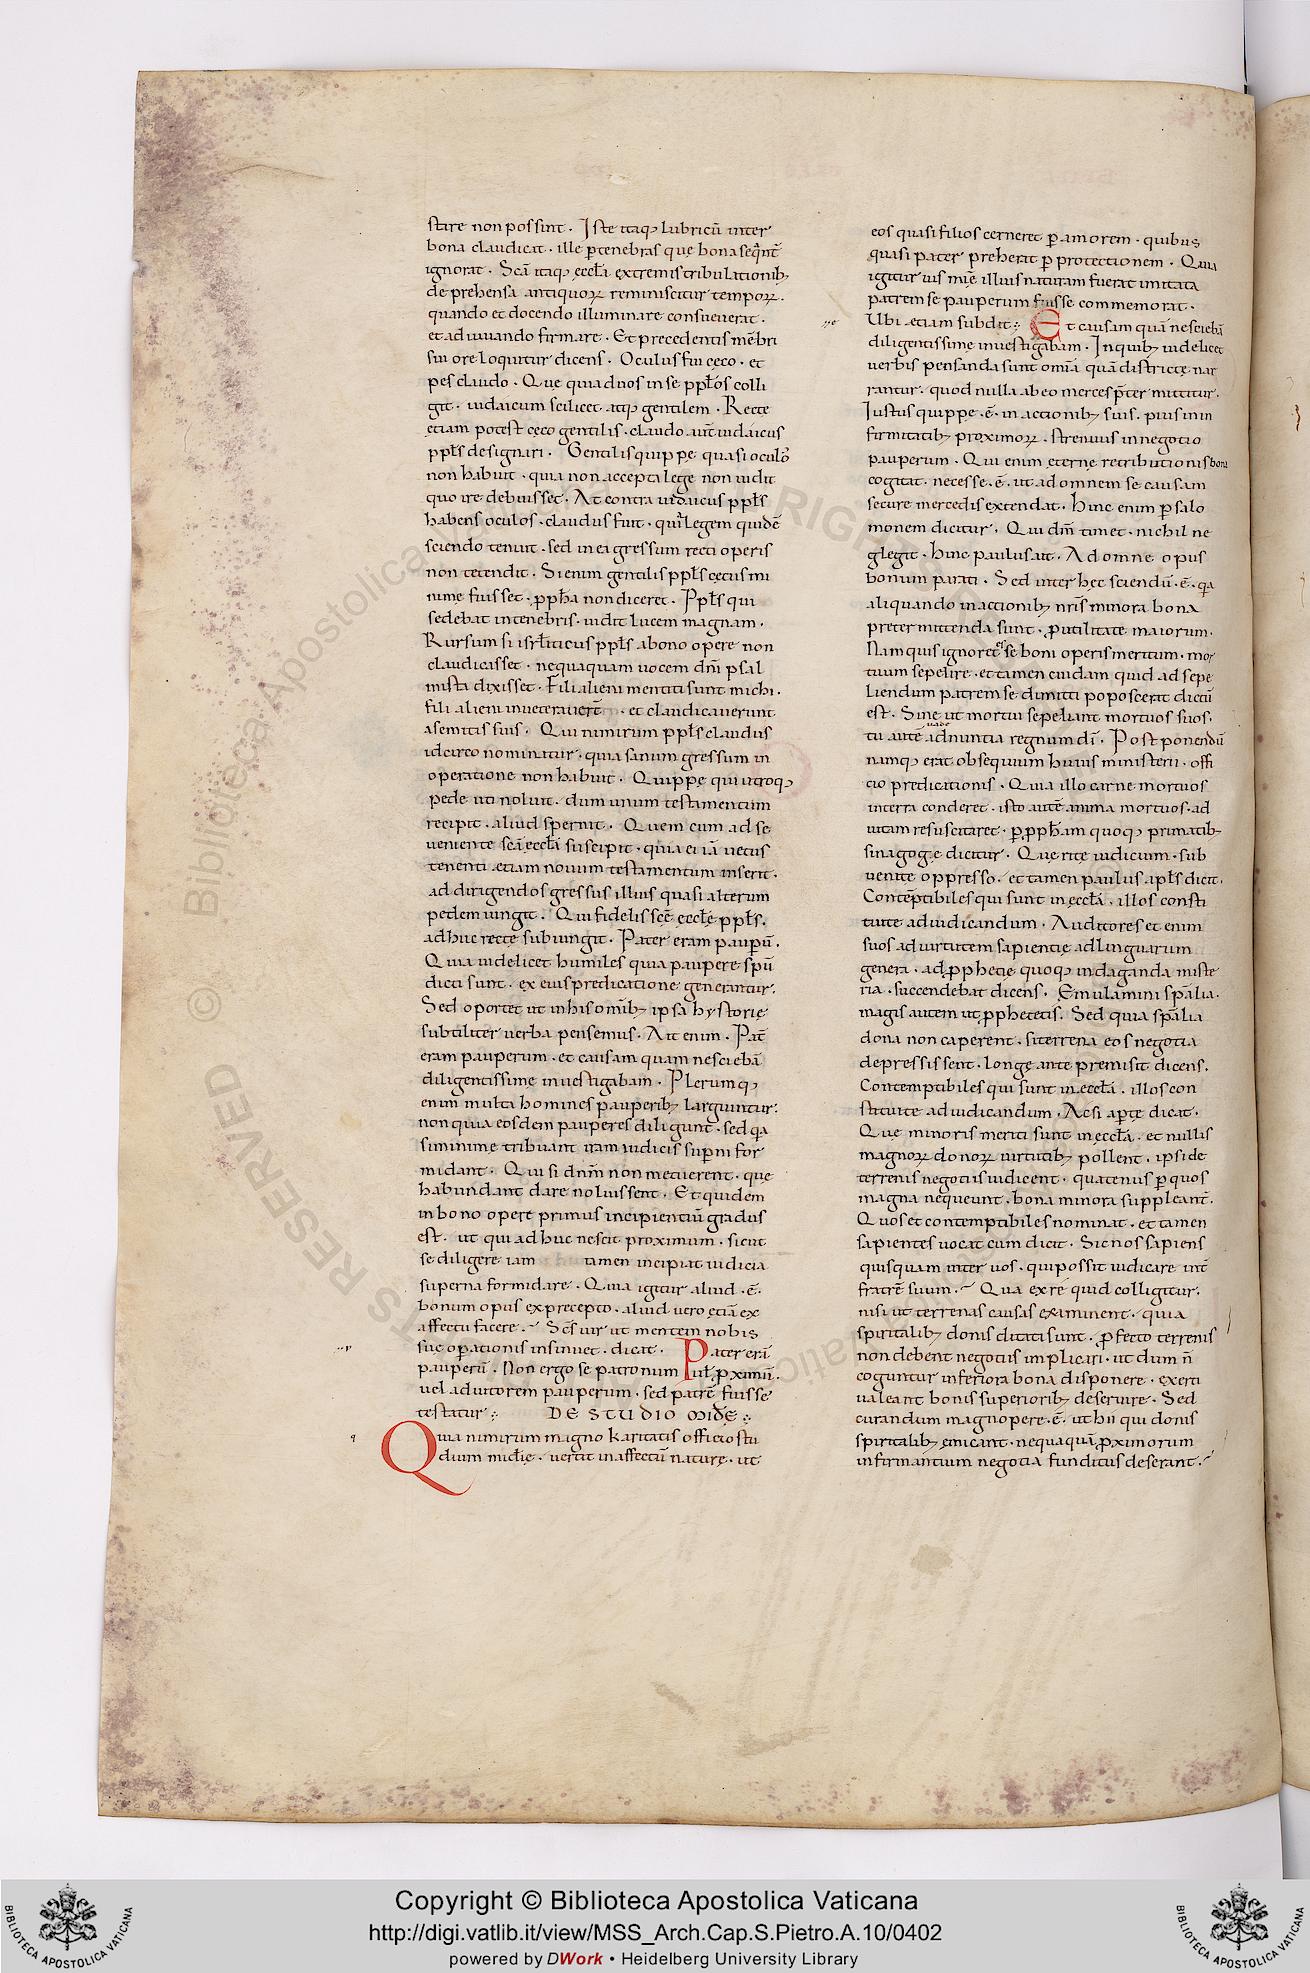 stare non possint. Iste itaq; lubricũ inter
bona claudicat. ille p tenebras quę bona seqnt̃
ignorat. Scã itaq; ęccła extremis tribulationib;
deprehensa antiquoꝝ reminiscitur tempoꝝ.
quando et docendo illuminare consueverat.
et adiuuando firmare. Et precedentis mẽbri
sui ore loquitur dicens. Oculus fui cęco. et
pes claudo. Quę quia duos in se ppłos colli
git. iudaicum scilicet atq; gentilem. Recte
etiam potest cęco gentilis. claudo aut̃ iudaicus
ppłs designari. Gentilis quippe quasi oculos
non habuit. quia non accepta lege non uidit
quo ire debuisset. At contra iudaicus ppłs
habens oculos. claudus fuit. qui legem quidẽ
sciendo tenuit. sed in ei gressum recti operis
non tetendit. Si enim gentilis ppłs cęcus mi
nime fuisset. ꝓpħa non diceret. Ppłs qui
sedebat in tenebris. uidit lucem magnam.
Rursum si isrłiticus ppłs a bono opere non
claudicasset. nequaquam uocem dñi psal
mista dixisset. Filii alieni mentiti sunt michi.
filii alieni inueterauer̃t. et claudicauerunt
a semitis suis. Qui nimirum ppłs claudus
idcirco nominatur. quia sanum gressum in
operatione non habuit. Quippe qui utroq;
pede uti noluit. dum unum testamentum
recipit. aliud spernit. Quem cum ad se
ueniente scã ęccła suscipit. quia ei iã uetus
tenenti etiam nouum testamentum inserit.
ad dirigendos gressus illius quasi alterum
pedem iungit. Qui fidelis scę̃ ęccłę ppłs.
adhuc recte subiungit. Pater eram paupũ.
Quia uidelicet humiles quia paupere spũ
dicti sunt. ex eius predicatione generantur.
Sed oportet ut in his omĩb; ipsa hystorię
subtiliter uerba pensemus. Ait enim. Pat̃
eram pauperum. et causam quam nesciebã
diligentissime inuestigabam. Plerumq;
enim multa homines pauperib; largiuntur.
non quia eosdem pauperes diligunt. sed qa
si minime tribuant iram iudicis supni for
midant. Qui si dñm non metuerent. quę
habundant dare noluissent. Et quidem
in bono opere primus incipientiũ gradus
est. ut qui adhuc nescit proximum. sicut
se diligere iam tamen incipiat iudicia
superna formidare. Quia igitur aliud. ẽ.
bonum opus ex precepto. aliud uero etiã ex
affectu facere. Scs̃ uir ut mentem nobis
suę opationis insinuet. dicat. Pater erã
pauperũ. Non ergo se patronum uł ꝓximũ.
uel adiutorem pauperum. sed patrẽ fuisse
testatur. DE STUDIO MIDE
Quia nimirum magno karitatis officio stu
dium mid̄ię. uertit in affectũ naturę. ut
eos quasi filios cerneret p amorem. quibus
quasi pater preherat p protectionem. Quia
igitur uis mię illius naturam fuerat imitata
patrem se pauperum fuisse commemorat.
Ubi etiam subdit. Et causam quã nesciebã
diligentissime inuestigabam. In quib; uidelicet
uerbis pensanda sunt omĩa quã districte nar
rantur. quod nulla ab eo merces pt̃er mittitur.
Iustus quippe. ẽ. in actionib; suis. pius in in
firmitatib; proximoꝝ. strenuus in negotio
pauperum. Qui enim ęternę retributionis bona
cogitat. necesse. ẽ. ut ad omnem se causam
secure mercedis extendat. Hinc enim p salo
monem dicitur. Qui dm̃ timet. nichil ne
glegit. Hinc paulus ait. Ad omne opus
bonum parati. Sed inter hęc sciendũ. ẽ. qa
aliquando in actionib; nr̃is minora bona
pretermittenda sunt. ꝓ utilitate maiorum.
Nam quis ignoret esse boni operis meritum. mor
tuum sepelire. et tamen cuidam quid ad sepe
liendum patrem se dimitti poposcerat dictũ
est. Sine ut mortui sepeliant mortuos suos.
tu autẽ uade adnuntia regnum dĩ. Postponendũ
namq; erat obsequium huius ministerii. offi
cio predicationis. Quia illo carne mortuos
in terra conderet. isto autẽ anima mortuos. ad
uitam resuscitaret. P ꝓpħam quoq; primatib;
sinagogę dicitur. Querite iudicium. sub
uenite oppresso. et tamen paulus apłs dicit.
Contẽptibiles qui sunt in ęccła. illos consti
tuite ad iudicandum. Auditores et enim
suos ad uirtutem sapientię ad linguarum
genera. ad ꝓphetię quoq; indaganda miste
ria. succendebat dicens. Emulamini spãlia.
magis autem ut ꝓphetetis. Sed quia spãlia
dona non caperent. si terrena eos negotia
depressissent. longe ante premisit dicens.
Contemptibiles qui sunt in ęccła. illos con
stituite ad iudicandum. Ac si apte dicat.
Qui minoris meriti sunt in ęccła. et nullis
magnoꝝ donoꝝ uirtutib; pollent. ipsi de
terrenis negotiis iudicent. quatenus p quos
magna nequeunt. bona minora suppleant̃.
Quos et contemptibiles nominat. et tamen
sapientes uocat cum dicit. Sic nos sapiens
quisquam inter uos. qui possit iudicare int̃
fratrẽ suum. Qua ex re quid colligitur.
nisi ut terrenas causas examinent. quia
spiritalib; donis ditati sunt. ꝓfecto terrenis
non debent negotiis implicari. ut dum ñ
coguntur inferiora bona disponere. exerti
ualeant bonis superiorib; deseruire. Sed
curandum magnopere. ẽ. ut hii qui donis
spiritalib; emicant. nequaquã ꝓximorum
infirmantium negotia funditus deserant.
© Biblioteca Apostolica Vaticana ALL RIGHTS RESERVED
Copyright © Biblioteca Apostolica Vaticana
http://digi.vatlib.it/view/MSS_Arch.Cap.S.Pietro.A.10/0402
powered by DWork • Heidelberg University Library
BIBLIOTECA APOSTOLICA VATICANA
BIBLIOTECA APOSTOLICA VATICANA